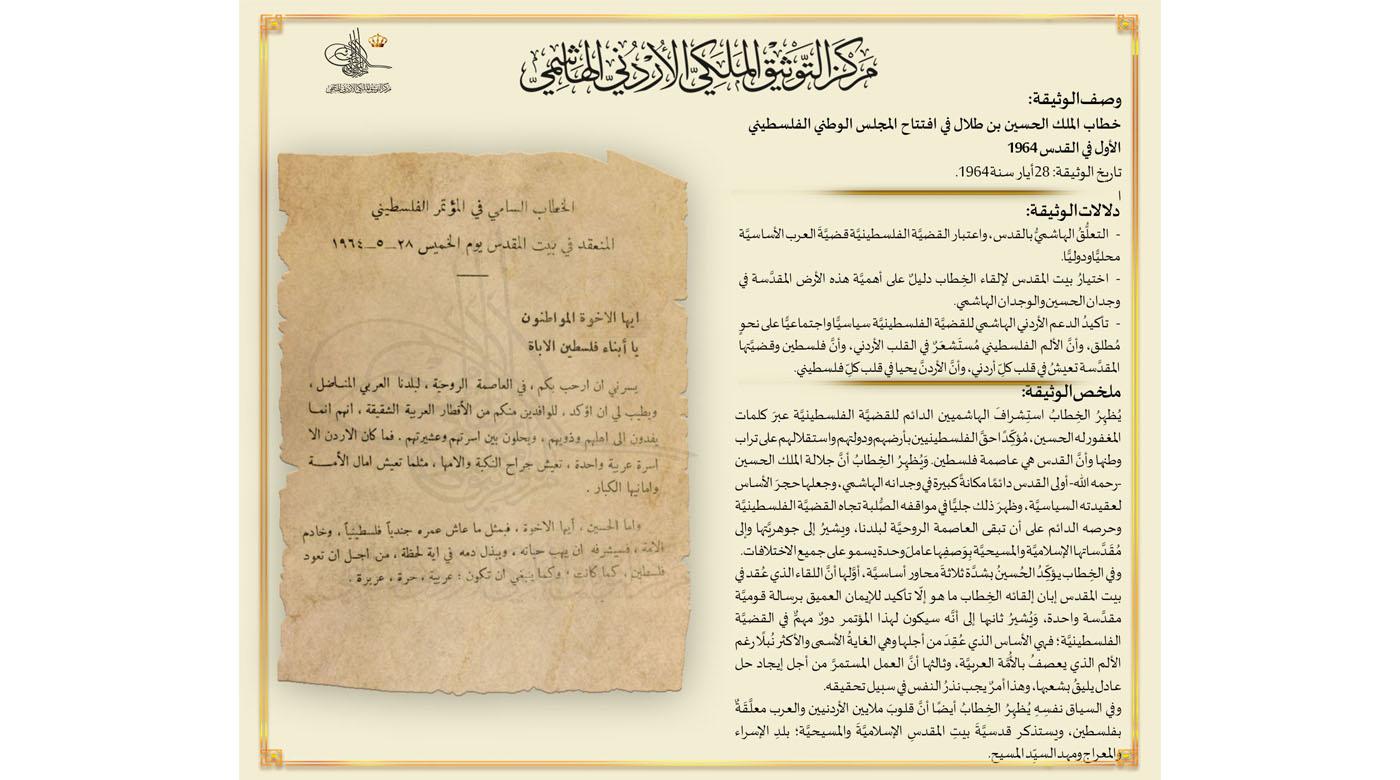 مركز التوثيق الملكي الأردني الهاشمي
وصف الوثيقة:
خطاب الملك الحسين بن طلال في افتتاح المجلس الوطني الفلسطيني
الأول في القدس 1964
تاريخ الوثيقة: 28 أيار سنة 1964.
ا
دلالات الوثيقة:
- التعلُّقُ الهاشميُّ بالقدس، واعتبار القضيَّة الفلسطينيَّة قضيَّةَ العرب الأساسيَّة
محليًّا ودوليًّا.
- اختيارُ بيت المقدس لإلقاء الخِطاب دليلٌ على أهميَّة هذه الأرض المقدَّسة في
وجدان الحسين والوجدان الهاشمي.
- تأكيدُ الدعم الأردني الهاشمي للقضيَّة الفلسطينيَّة سياسيًّا واجتماعيًّا على نحوٍ
مُطلق، وأنَّ الألم الفلسطيني مُستَشعَرٌ في القلب الأردني، وأنَّ فلسطين وقضيَّتها
المقدَّسة تعيشُ في قلب كلِّ أردني، وأنَّ الأردنَّ يحيا في قلب كلِّ فلسطيني.
ملخص الوثيقة:
يُظهِرُ الخِطابُ استِشرافَ الهاشميين الدائم للقضيَّة الفلسطينيَّة عبرَ كلمات
المغفور له الحسين، مُؤكِّدًا حقَّ الفلسطينيين بأرضهم ودولتهم واستقلالهم على تراب
وطنها وأنَّ القدس هي عاصمة فلسطين. وَيُظهِرُ الخِطابُ أنَّ جلالة الملك الحسين
-رحمه الله- أولى القدس دائمًا مكانةً كبيرة في وجدانه الهاشمي، وجعلها حجرَ الأساس
لعقيدته السياسيَّة، وظهرَ ذلك جليًّا في مواقفه الصُّلبة تجاه القضيَّة الفلسطينيَّة
وحرصه الدائم على أن تبقى العاصمة الروحيَّة لبلدنا، ويشيرُ إلى جوهريَّتها وإلى
مُقَدَّساتها الإسلاميَّة والمسيحيَّة بِوَصفِها عاملَ وحدة يسمو على جميع الاختلافات.
وفي الخِطاب يؤكِّدُ الحُسينُ بشدَّة ثلاثةَ محاور أساسيَّة، أوَّلها أنَّ اللقاء الذي عُقد في
بيت المقدس إبان إلقائه الخِطاب ما هو إلّا تأكيد للإيمان العميق برسالة قوميَّة
مقدَّسة واحدة، وَيُشيرُ ثانيها إلى أنَّه سيكون لهذا المؤتمر دورٌ مهمٌّ في القضيَّة
الفلسطينيَّة؛ فهي الأساس الذي عُقِدَ من أجلها وهي الغايةُ الأسمى والأكثر نُبلًا رغم
الألم الذي يعصفُ بالأمَّة العربيَّة، وثالثها أنَّ العمل المستمرَّ من أجل إيجاد حل
عادل يليقُ بشعبها، وهذا أمرٌ يجب نذرُ النفس في سبيل تحقيقه.
وفي السياق نفسِهِ يُظهِرُ الخِطابُ أيضًا أنَّ قلوبَ ملايين الأردنيين والعرب معلَّقةٌ
بفلسطين، ويستذكر قدسيَّةَ بيتِ المقدس الإسلاميَّةَ والمسيحيَّة؛ بلدِ الإسراء
والمعراج ومهد السيّد المسيح.
الخطاب السامي في المؤتمر الفلسطيني
المنعقد في بيت المقدس يوم الخميس ٢٨_٥_١٩٦٤
ايها الاخوة المواطنون
يا أبناء فلسطين الاباة
يسرني ان ارحب بكم ، في العاصمة الروحية ، لبلدنا العربي المناضل ،
ويطيب لي ان اؤكد ، للوافدين منكم من الأقطار العربية الشقيقة ، انهم انما
يفدون الى اهلهم وذويهم ، ويحلون بين اسرتهم وعشيرتهم . فما كان الاردن الا
اسرة عربية واحدة ، تعيش جراح النكبة والامها ، مثلما تعيش امال الأمة
وامانيها الكبار .
واما الحسين ، أيها الاخوة ، فبمثل ما عاش عمره جندياً فلسطينياً ، وخادم
الامة ، فسيشرفه ان يهب حياته ، ويبذل دمه في اية لحظة ، من اجل ان تعود
فلسطين ، كما كانت ؛ وكما ينبغي ان تكون ؛ عربية ، حرة ، عزيزة .